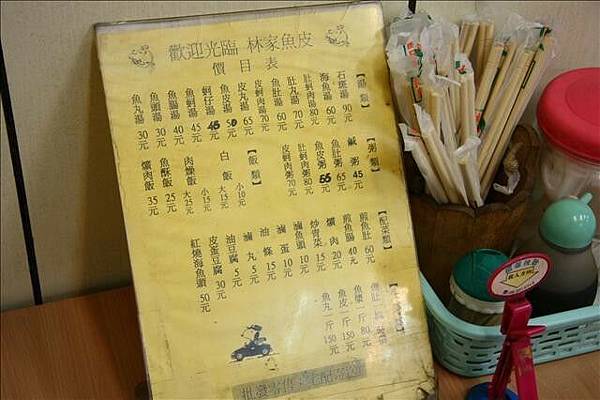 歡迎光臨 林家魚皮
價目表
【湯類】
石斑湯 90元
海魚湯 60元
肚蚵肉湯 80元
肚丸湯 70元
魚肚湯 60元
皮蚵肉湯 70元
皮丸湯 65元
魚皮湯 50元
蚵仔湯 45元
魚蚵湯 45元
魚腸湯 40元
魚頭湯 30元
魚丸湯 30元
【粥類】
鹹粥 45元
魚肚粥 65元
魚皮粥 55元
肚蚵肉粥 80元
皮蚵肉粥 70元
【飯類】
白飯 大15元 小10元
肉燥飯 大25元 小15元
魚酥飯 25元
爌肉飯 35元
【配菜類】
煎魚肚 60元
煎魚腸 40元
爌肉 20元
炒青菜 15元
滷魚頭 10元
滷蛋 10元
油條 15元
滷丸 5元
油豆腐 5元
皮蛋豆腐 30元
紅燒海魚頭 50元
魚漿一斤 80元
魚皮一斤 150元
魚丸一斤 150元